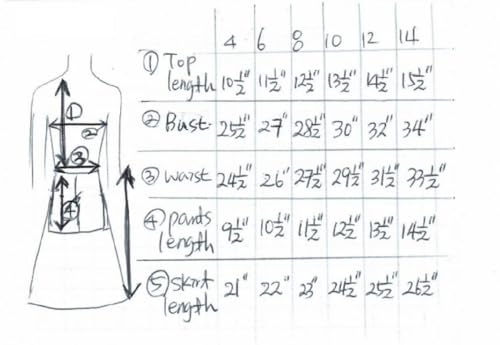 4 6 8 10 12 14
① Top length 10½" 11½" 12½" 13½" 14½" 15½"
② Bust 25½" 27" 28½" 30" 32" 34"
③ waist 24½" 26" 27½" 29½" 31½" 33½"
④ pants length 9½" 10½" 11½" 12½" 13½" 14½"
⑤ skirt length 21" 22" 23" 24½" 25½" 26½"
①
②
③
④